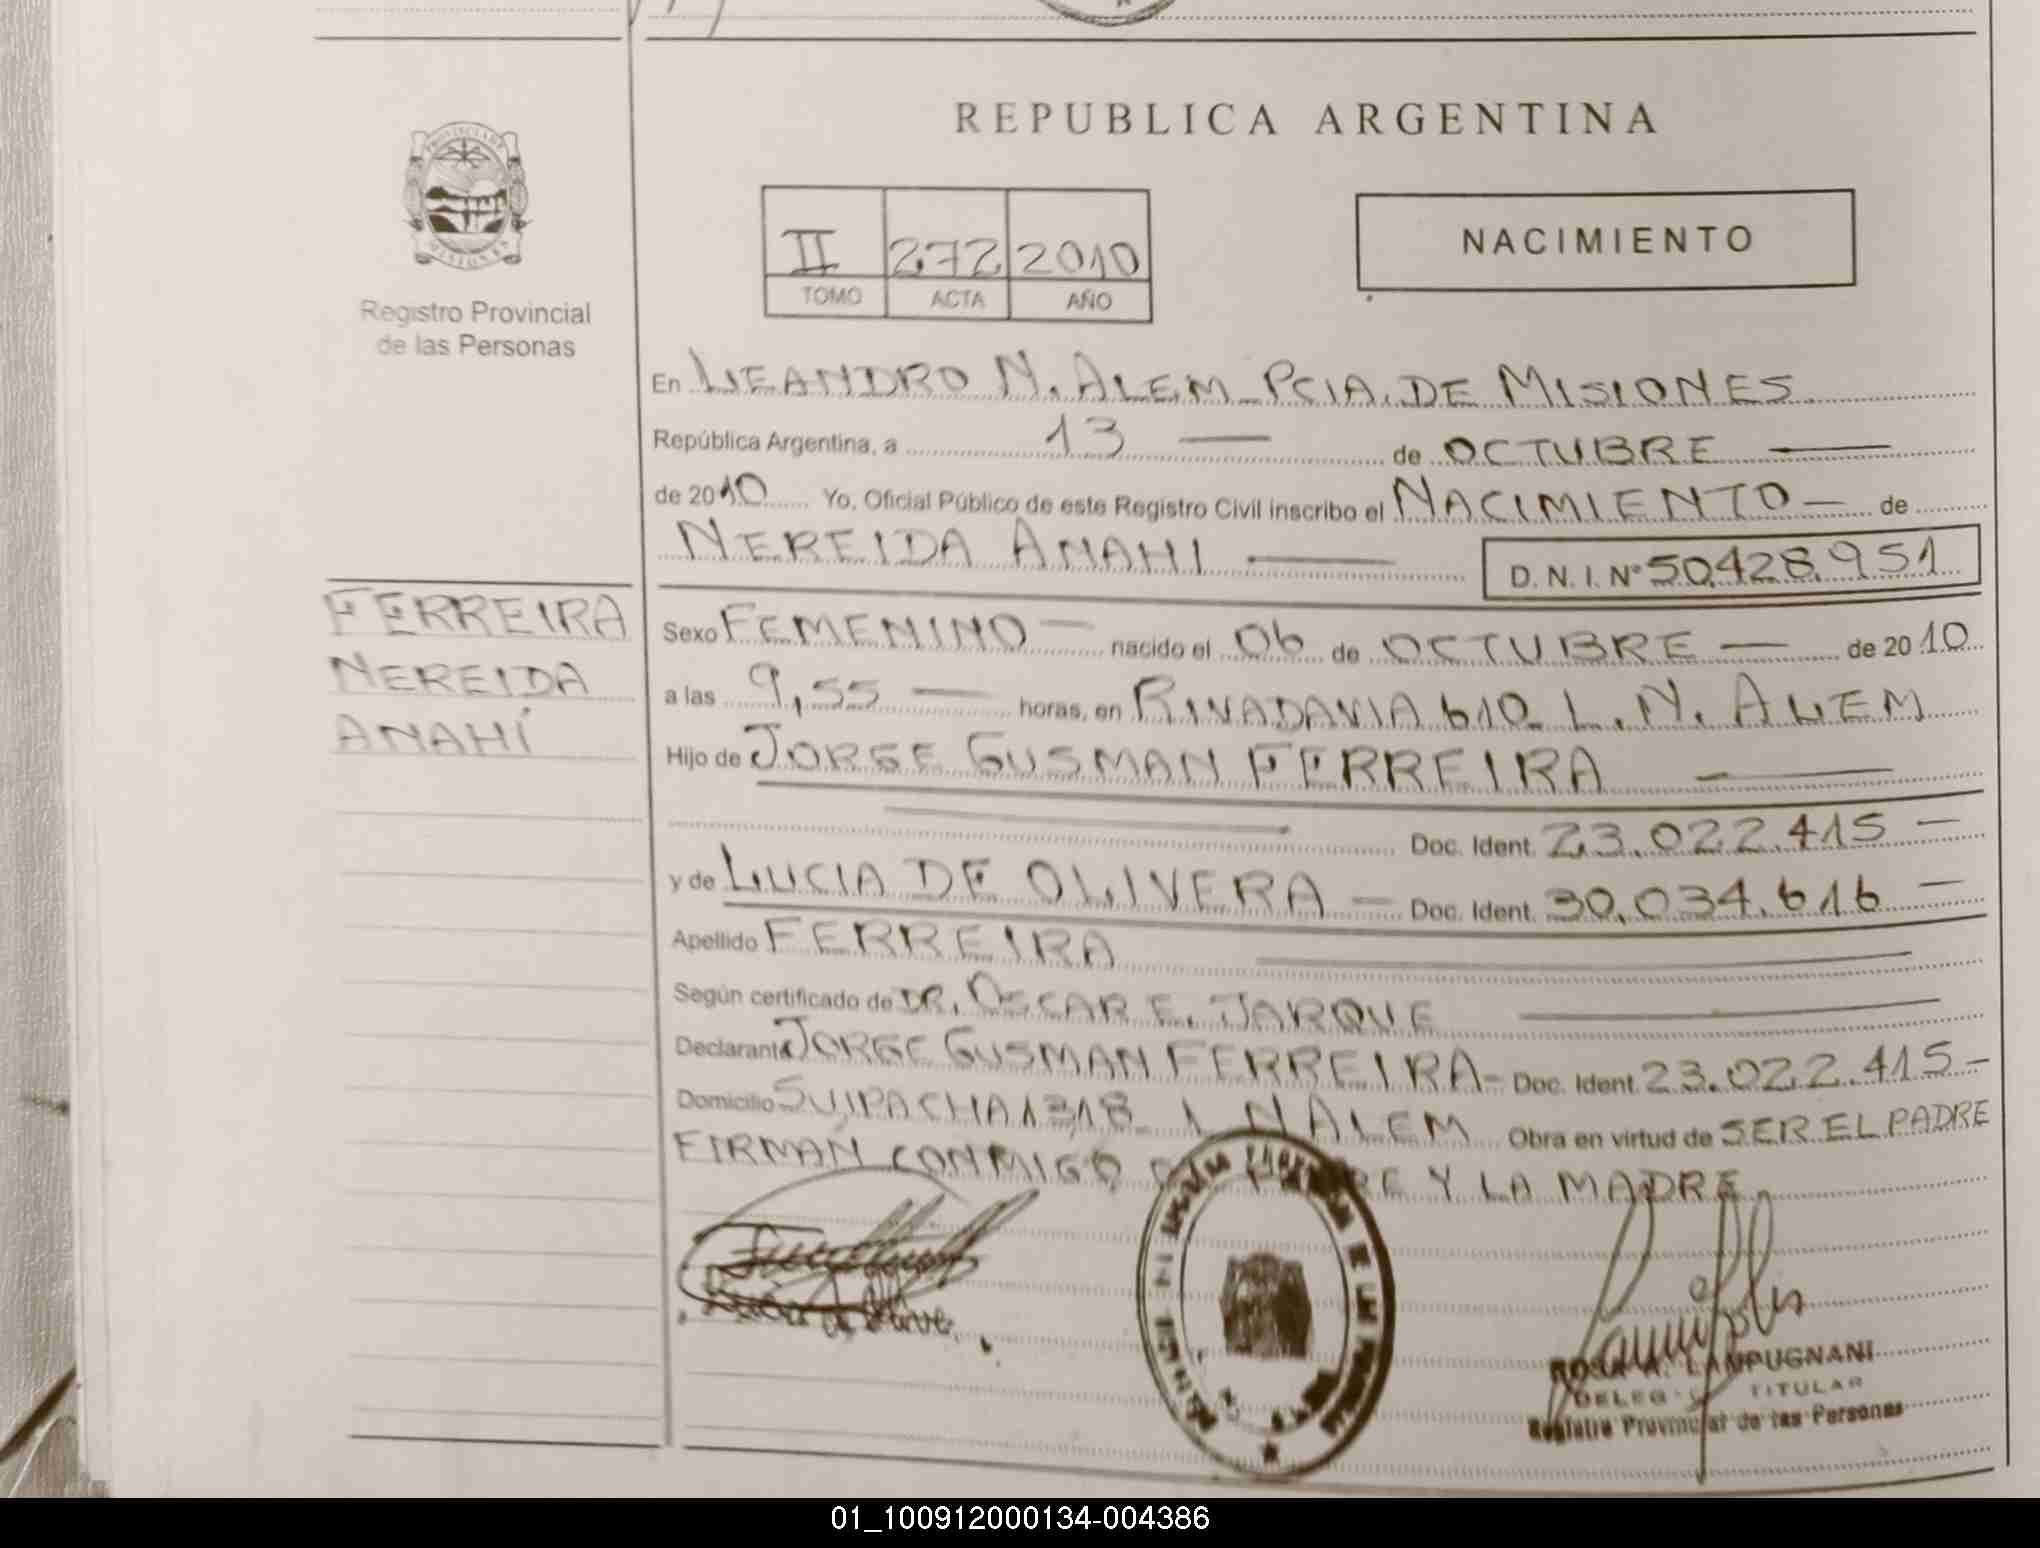 PROVINCIA DE
MISIONES
Registro Provincial
de las Personas
FERREIRA
NEREIDA
ANAHÍ
REPUBLICA ARGENTINA
II 272 2010
TOMO ACTA AÑO
NACIMIENTO
En LEANDRO N. ALEM PCIA. DE MISIONES
República Argentina, a 13 — de OCTUBRE —
de 2010 Yo, Oficial Público de este Registro Civil inscribo el NACIMIENTO — de
NEREIDA ANAHI — D. N. I. Nº 50.428.951
Sexo FEMENINO — nacido el 06 de OCTUBRE — de 2010
a las 9,55 — horas, en RIVADAVIA 610 L. N. ALEM
Hijo de JORGE GUSMAN FERREIRA —
Doc. Ident. 23.022.415 —
y de LUCIA DE OLIVERA — Doc. Ident. 30.034.616 —
Apellido FERREIRA
Según certificado de DR. OSCAR E. JARQUE
Declarante JORGE GUSMAN FERREIRA - Doc. Ident. 23.022.415 -
Domicilio SUIPACHA 1318 L N ALEM Obra en virtud de SER EL PADRE
FIRMAN CONMIGO Y LA MADRE
ROSA A. LAMPUGNANI
TITULAR
Registro Provincial de las Personas
01_100912000134-004386